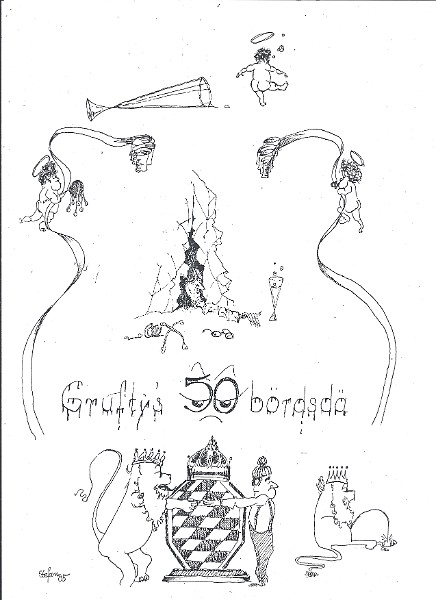 Grufty's 50 bördsdä